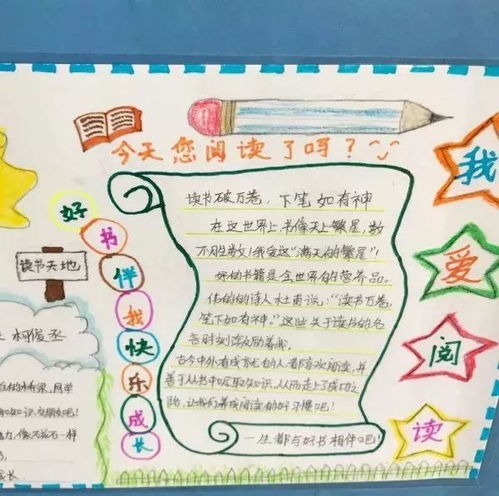 今天您阅读了吗？
好书伴我快乐成长
读书天地
读书破万卷，下笔如有神
在这世界上，书像天上繁星，数
不胜数！我爱这“满天的繁星”！
好的书籍是全世界的营养品。
伟大的诗人杜甫说：“读书万卷，
笔下如有神。”这些关于读书的名
言时刻激励着我。
古今中外有成就的人都喜欢阅读，并
善于从书中吸取知识，从而走上了成功之
路，让我们养成阅读的好习惯吧！
一生都与好书相伴吧！
我爱阅读